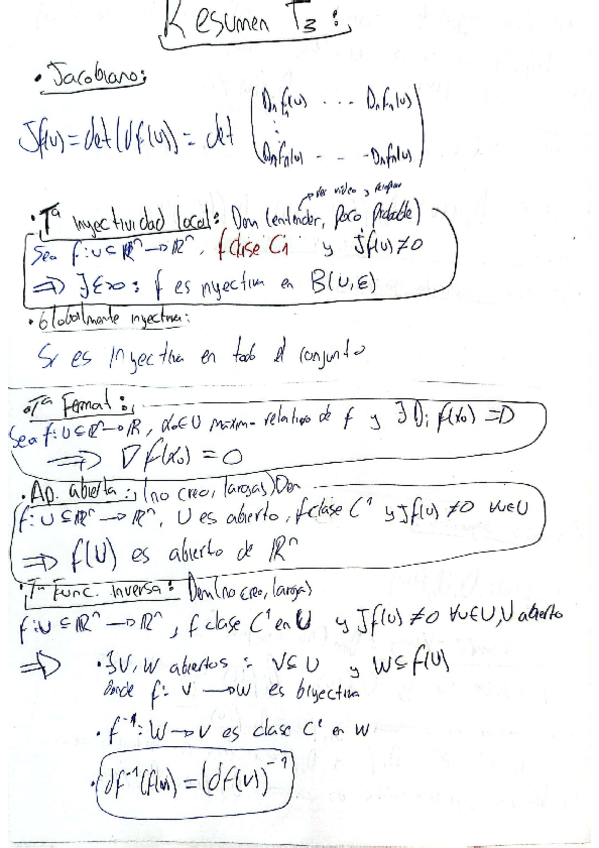 Resumen T3:
• Jacobiano:
Jf(u) = det(df(u)) = det ( D₁f₁(u) . . . Dₙf₁(u)
⋮
D₁fₙ(u) - - - Dₙfₙ(u) )
Ver video y
• Tª Inyectividad local: Dem (entender, Poco Probable)
Sea f: U ⊆ ℝⁿ → ℝⁿ, f clase C1 y Jf(u) ≠ 0
⇒ ∃ε>0 : f es inyectiva en B(u, ε)
• Globalmente inyectiva:
Si es inyectiva en todo el conjunto
• Tª Fermat:
Sea f: U ⊆ ℝⁿ → ℝ, x₀ ∈ U máximo relativo de f y ∃ Dᵢ f(x₀) = 0
⇒ ∇f(x₀) = 0
• Ap. abierta: (no creo, largas) Dem
f: U ⊆ ℝⁿ → ℝⁿ, U es abierto, f clase C¹ y Jf(u) ≠ 0 ∀u∈U
⇒ f(U) es abierto de ℝⁿ
• Tª Func. Inversa: Dem (no creo, largas)
f: U ⊆ ℝⁿ → ℝⁿ, f clase C¹ en U y Jf(u) ≠ 0 ∀u∈U, U abierto
⇒ • ∃V, W abiertos : V ⊆ U y W ⊆ f(U)
Donde f: V → W es biyectiva
• f⁻¹: W → V es clase C¹ en W
• df⁻¹(f(u)) = (df(u))⁻¹